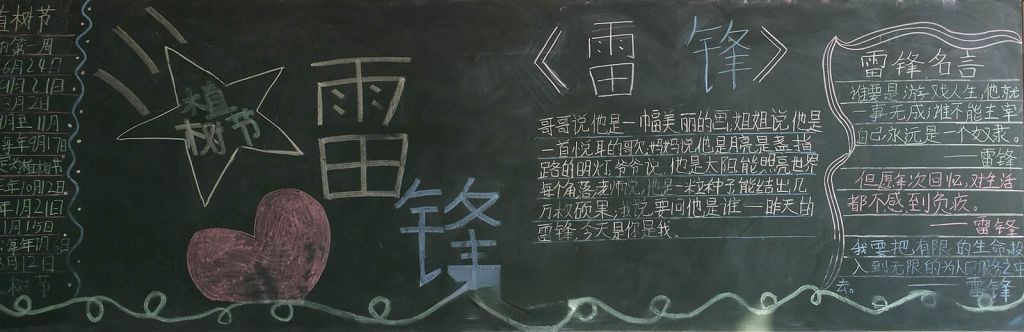 植树节
的第一周
6月24日
9月21日
3月2日
11月
每年9月17日
年10月12日
年1月21日
1月15日
3月12日
树节
植
树节
雷
锋
《雷锋》
哥哥说他是一幅美丽的画,姐姐说,他是
一首悦耳的歌,妈妈说,他是月亮是盏指
路的明灯,爷爷说,他是太阳能照亮世界
每个角落,老师说,他是一米这种子能结出几
万枚硕果,我说,要问他是谁——昨天的
雷锋,今天是你是我.
雷锋名言
谁要是游戏人生,他就
一事无成;谁不能主宰
自己永远是一个奴隶。
——雷锋
但愿每次回忆,对生活
都不感到负疚。
——雷锋
我要把有限的生命投
入到无限的为人民服务之中
去。——雷锋